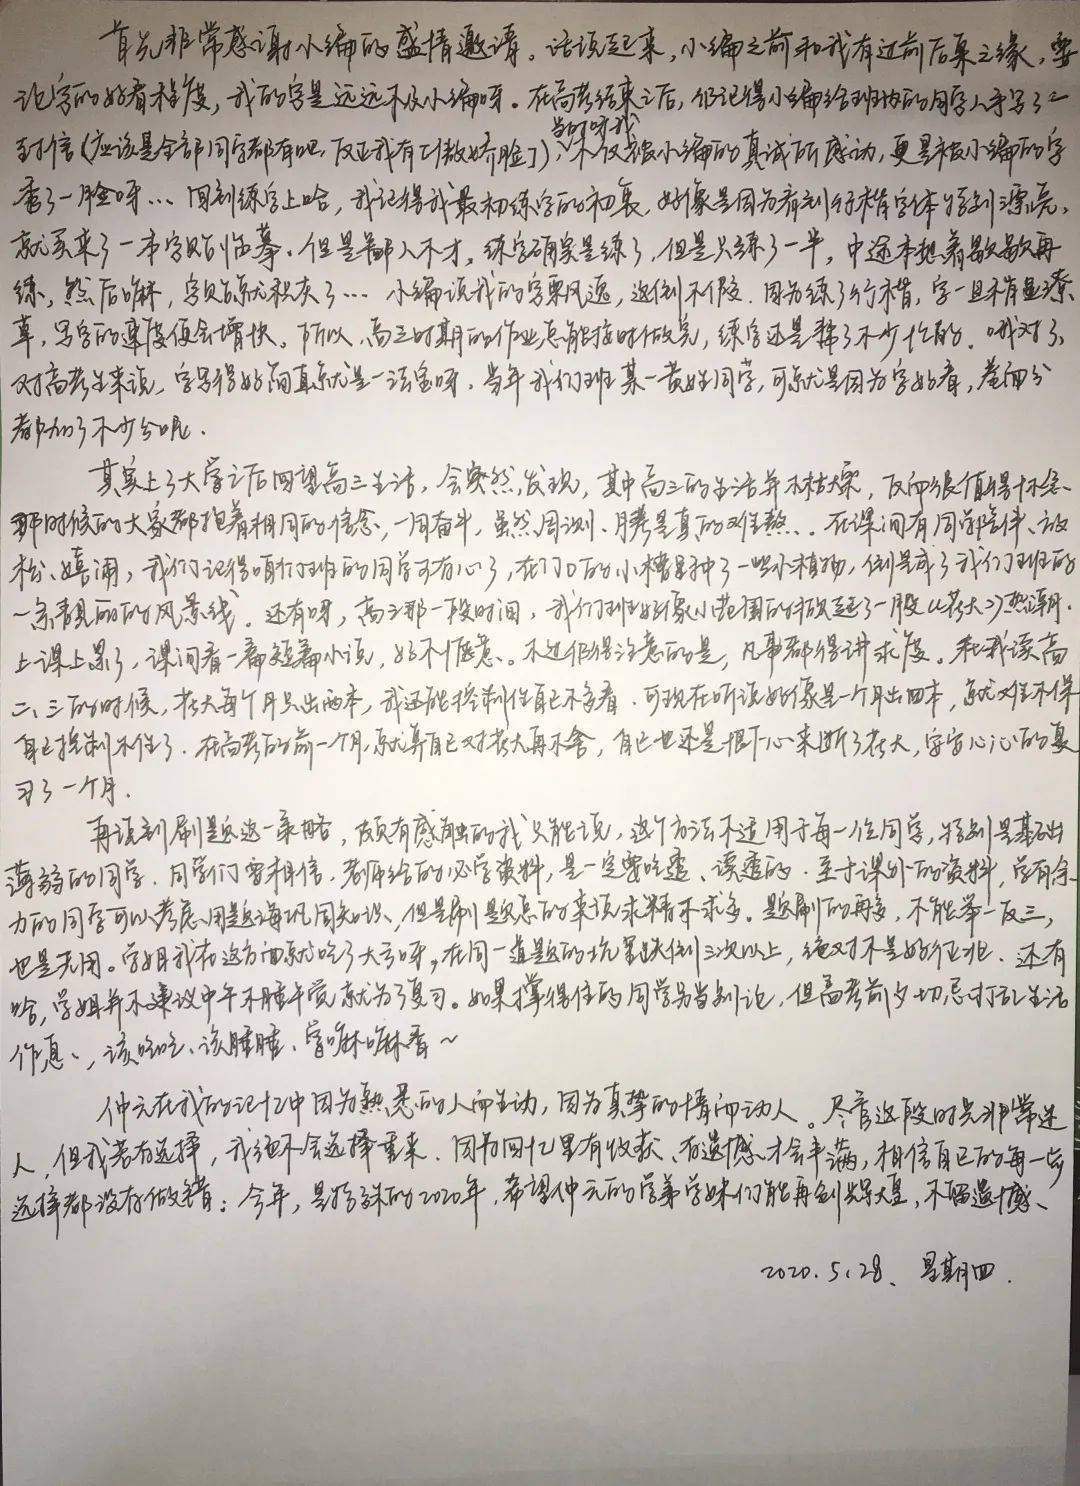 首先非常感谢小编的盛情邀请。话说起来，小编之前和我有过前后桌之缘，要
论字的好看程度，我的字是远远不及小编呀。在高考结束之后，仍记得小编给班内的同学人手写了一
封信（应该是全部同学都有吧，反正我有），当时呀我不仅被小编的真诚所感动，更是被小编的字
秀了一脸呀…回到练字上哈，我记得我最初练字的初衷，好像是因为看到行楷字体特别漂亮，
就买来了一本字贴临摹。但是鄙人不才，练字确实是练了，但是只练了一半，中途本想着歇歇再
练，然后嘛，字贴就积灰了…小编说我的字飘逸，这倒不假。因为练了行楷，字一旦稍显潦
草，写字的速度便会增快。所以，高三时期的作业总能按时做完，练字还是帮了不少忙的。哦对了，
对高考生来说，字写得好简直就是一法宝呀。当年我们班某一黄姓同学，可就是因为字好看，卷面分
都加了不少分呢.
其实上了大学之后回望高三生活，会突然发现，其中高三的生活并不枯燥，反而很值得怀念.
那时候的大家都抱着相同的信念，一同奋斗，虽然周测、月考是真的难熬、。在课间有同学陪伴、放
松、嬉闹，我们记得咱们班的同学可有心了，在门口的小槽里种了一些小植物，倒是成了我们班的
一条靓丽的风景线。还有呀，高三那一段时间，我们班好像小范围的掀起了一股《花火》热潮.
上课上累了，课间看一篇短篇小说，好不惬意。不过仍得注意的是，凡事都得讲求度。在我读高
二、三的时候，花火每个月只出两本，我还能控制住自己不多看.可现在听说好像是一个月出四本，就难不保
自己控制不住了.在高考的前一个月，就算自己对花火再不舍，自己也还是狠下心来断了花火，安安心心的复
习了一个月.
再谈到刷题这一策略，颇有感触的我只能说，这个方法不适用于每一位同学，特别是基础
薄弱的同学.同学们要相信，老师给的必学资料，是一定要吃透、读透的.至于课外的资料，学有余
力的同学可以考虑用题海巩固知识，但是刷题总的来说求精不求多。题刷的再多，不能举一反三，
也是无用。学姐我在这方面就吃了大亏呀。在同一道题的坑里跌倒三次以上，绝对不是好征兆.还有
哈，学姐并不建议中午不睡午觉就为了复习。如果撑得住的同学另当别论，但高考前夕切忌打乱生活
作息、，该吃吃、该睡睡、
仲元在我的记忆中因为熟悉的人而生动，因为真挚的情而动人。尽管这段时光非常迷
人，但我若有选择，我绝不会选择重来.因为回忆里有收获、有遗憾才会丰满，相信自己的每一步
选择都没有做错；今年，是特殊的2020年，希望仲元的学弟学妹们能再创辉煌，不留遗憾、
2020.5.28、星期四.